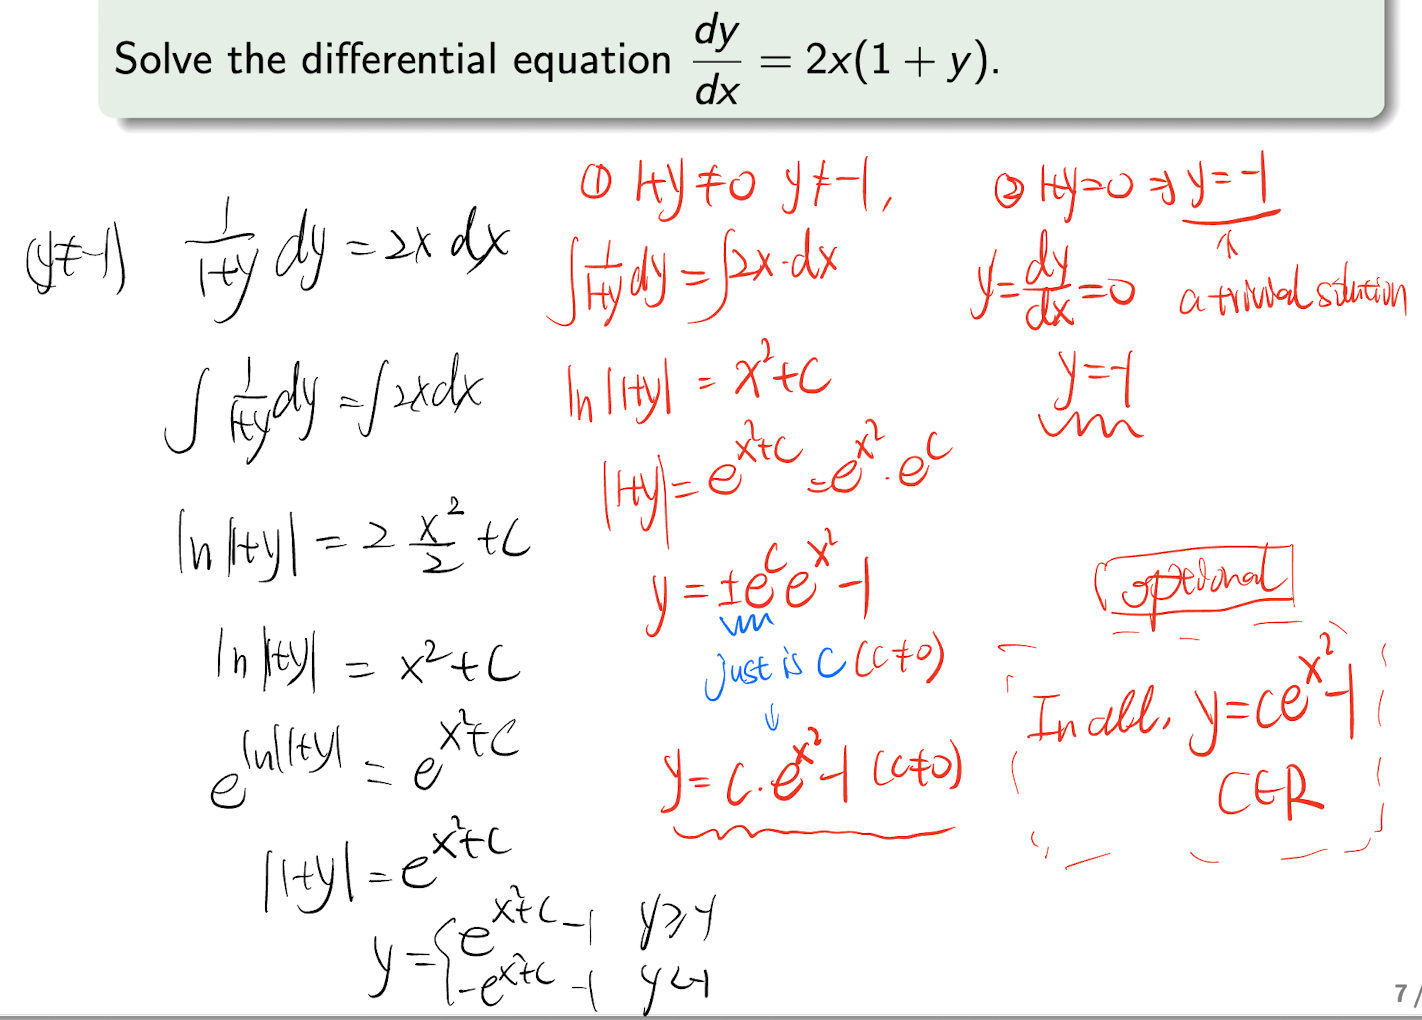 Solve the differential equation dy/dx = 2x(1 + y).
(y≠-1) 1/(1+y) dy = 2x dx
∫ 1/(1+y) dy = ∫ 2x dx
ln|1+y| = 2 x²/2 + C
ln|1+y| = x² + C
e^(ln|1+y|) = e^(x²+C)
|1+y| = e^(x²+C)
y = { e^(x²+C) - 1 y ≥ -1
-e^(x²+C) - 1 y < -1
① 1+y ≠ 0 y ≠ -1,
∫ 1/(1+y) dy = ∫ 2x·dx
ln|1+y| = x² + C
|1+y| = e^(x²+C) = e^(x²) · e^C
y = ±e^C e^(x²) - 1
Just is C (C≠0)
↓
y = C·e^(x²) - 1 (C≠0)
② 1+y=0 ⇒ y=-1
↑
a trivial solution
y' = dy/dx = 0
y=-1
optional
In all, y = Ce^(x²) - 1
C∈R
7 /